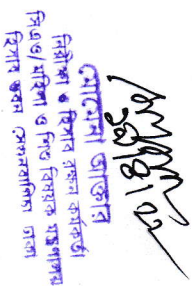 মোমেনা আক্তার
নিরীক্ষা ও হিসাব রক্ষন কর্মকর্তা
সিএও/মহিলা ও শিশু বিষয়ক মন্ত্রণালয়
হিসাব ভবন সেগুনবাগিচা ঢাকা